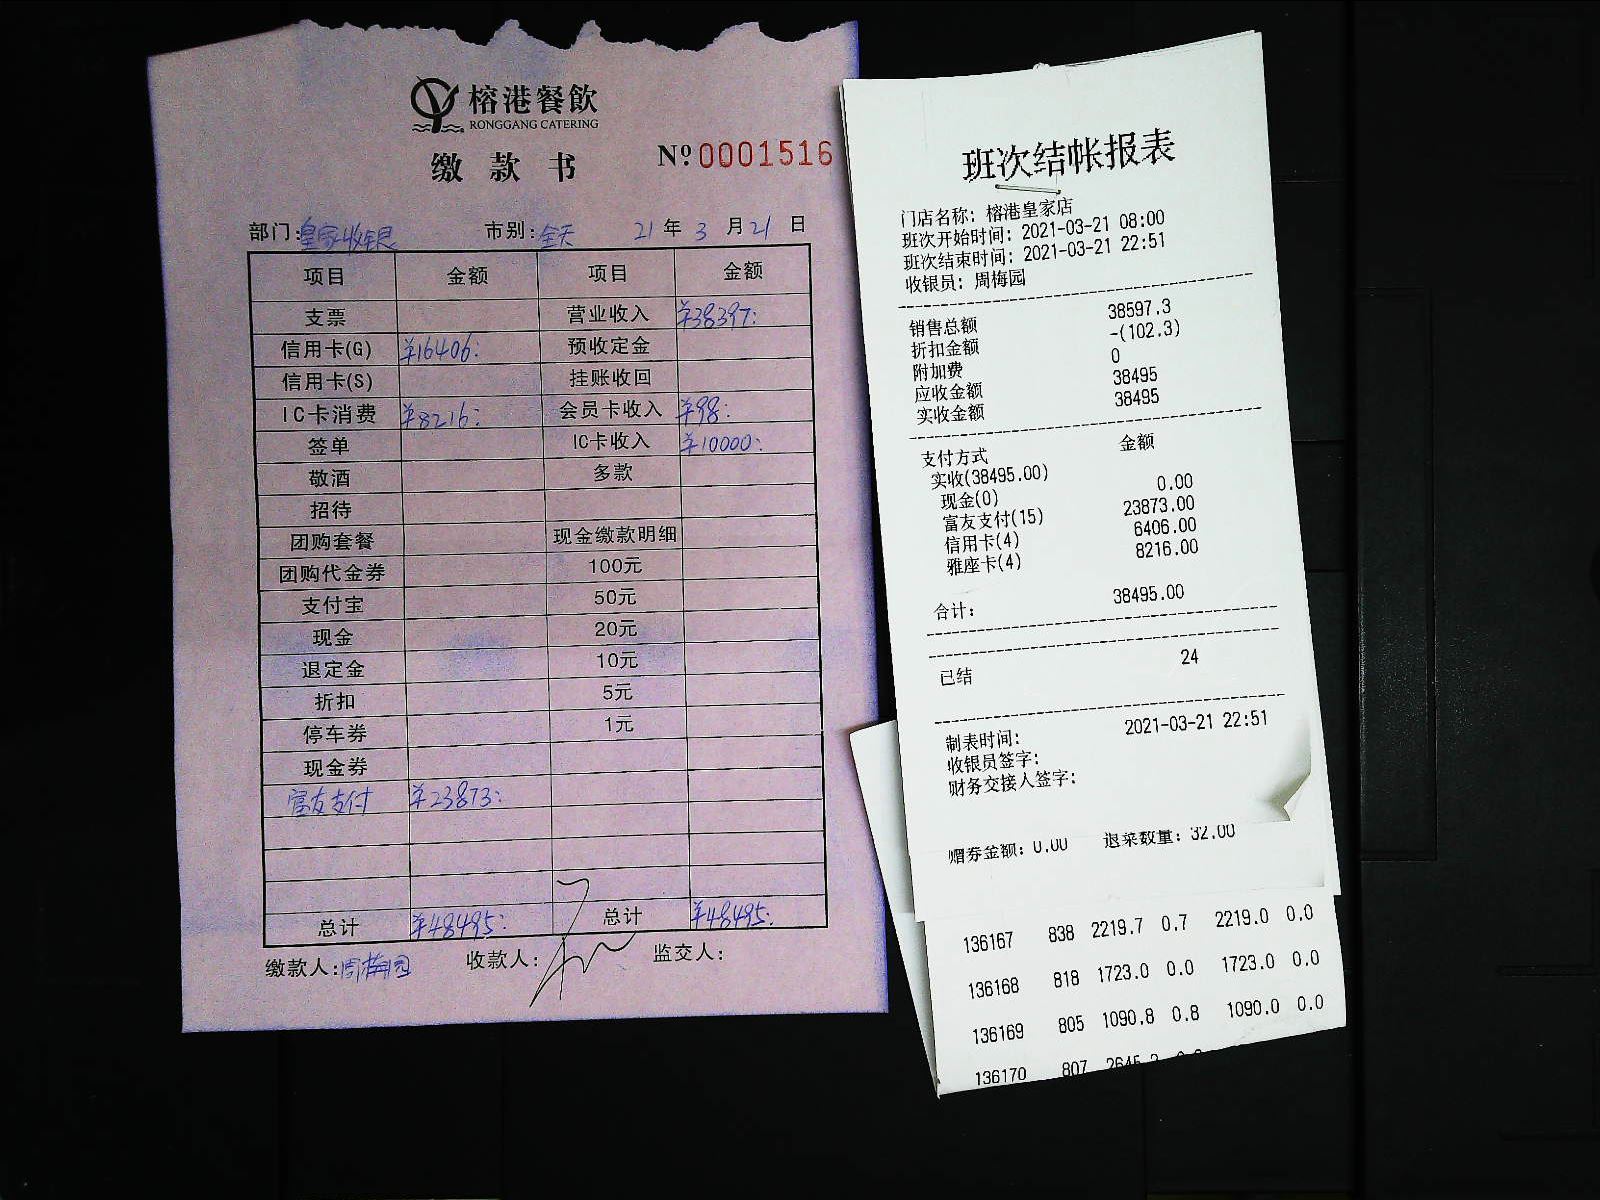 榕港餐飲
RONGGANG CATERING
缴款书
№ 0001516
部门:皇家收银 市别:全天 21年3月21日
项目 金额 项目 金额
支票 营业收入 ¥38397:
信用卡(G) ¥16406: 预收定金
信用卡(S) 挂账收回
IC卡消费 ¥8216: 会员卡收入 ¥98:
签单 IC卡收入 ¥10000:
敬酒 多款
招待
团购套餐 现金缴款明细
团购代金券 100元
支付宝 50元
现金 20元
退定金 10元
折扣 5元
停车券 1元
现金券
富友支付 ¥23873:
总计 ¥48495: 总计 ¥48495:
缴款人:周梅园 收款人: 监交人:
班次结帐报表
门店名称: 榕港皇家店
班次开始时间: 2021-03-21 08:00
班次结束时间: 2021-03-21 22:51
收银员: 周梅园
销售总额 38597.3
折扣金额 -(102.3)
附加费 0
应收金额 38495
实收金额 38495
支付方式 金额
实收(38495.00)
现金(0) 0.00
富友支付(15) 23873.00
信用卡(4) 6406.00
雅座卡(4) 8216.00
合计: 38495.00
已结 24
制表时间: 2021-03-21 22:51
收银员签字:
财务交接人签字:
赠券金额: 0.00 退菜数量: 32.00
136167 838 2219.7 0.7 2219.0 0.0
136168 818 1723.0 0.0 1723.0 0.0
136169 805 1090.8 0.8 1090.0 0.0
136170 807